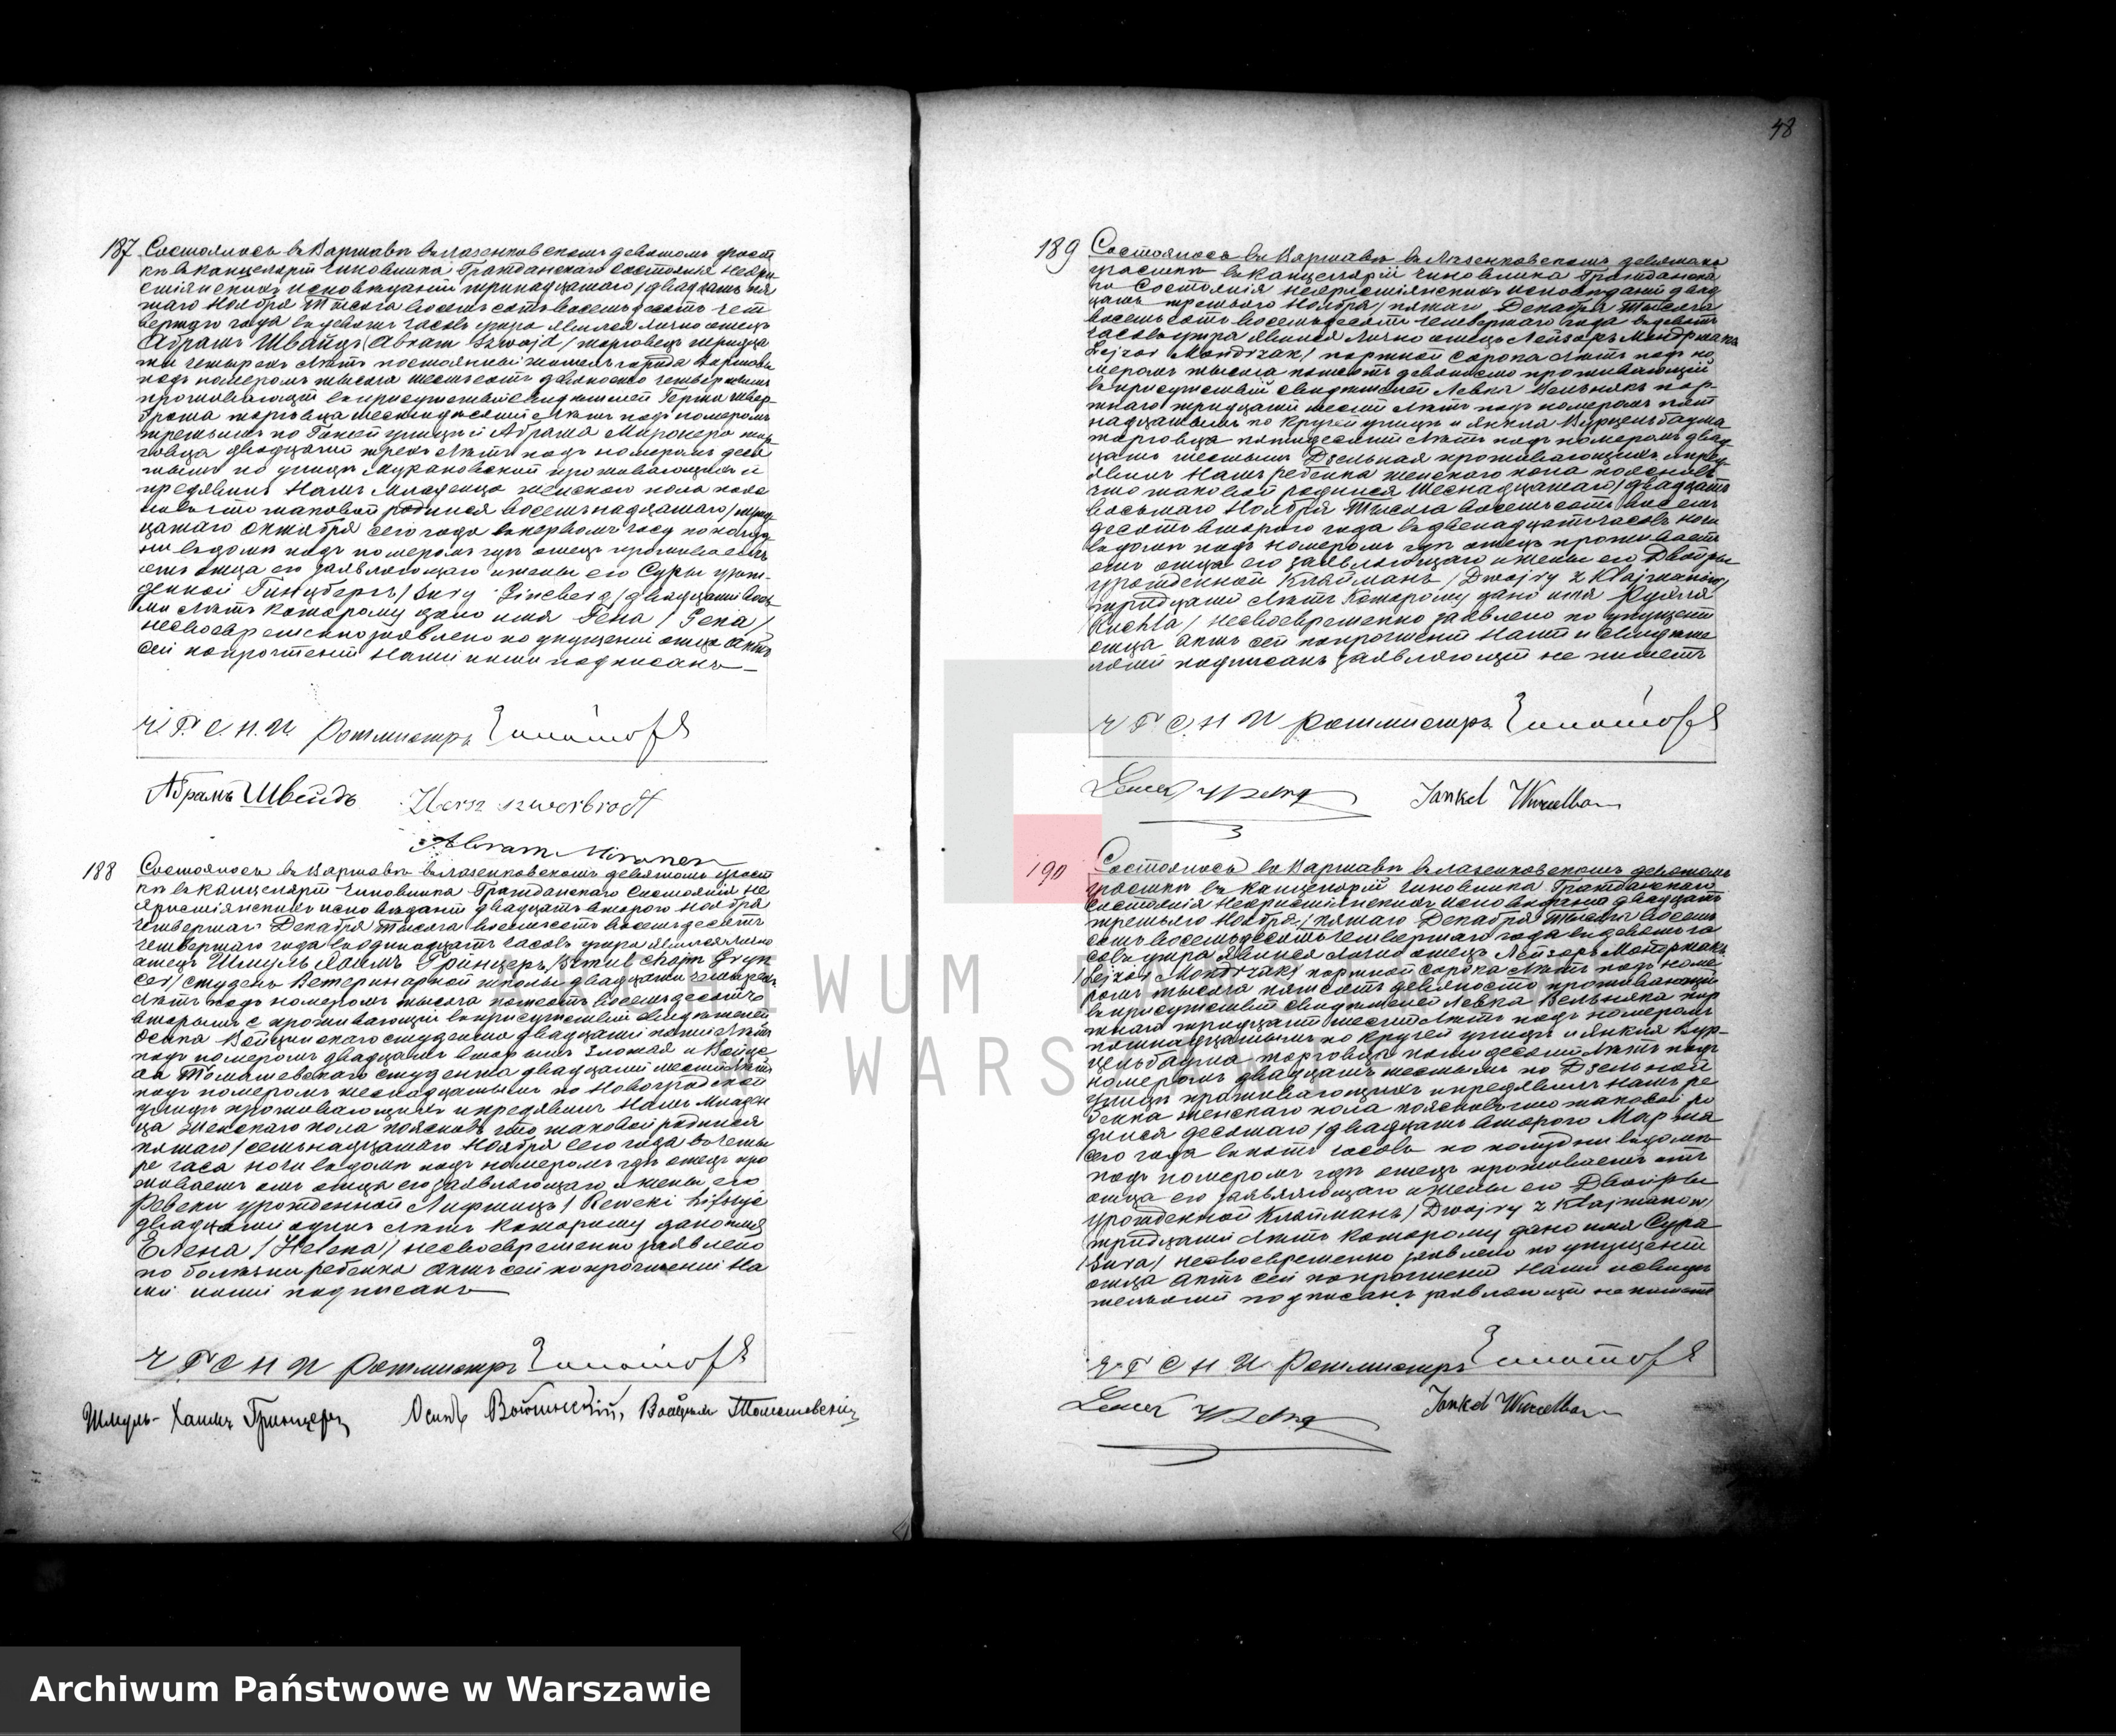 48
187 Состоялось въ Варшавѣ въ Лазенковскомъ девятомъ участ
кѣ въ канцеляріи Чиновника Гражданскаго Состоянія Нехри
стіянскихъ исповѣданій тринадцатаго / двадцать пя
таго Ноября Тысяча восемьсотъ восемьдесятъ чет
вертаго года въ девять часовъ утра явился лично отецъ
Абрамъ Швайдъ / Abram Szwajd / торговецъ тридца
ти четырехъ лѣтъ постоянный житель города Варшавы
подъ номеромъ тысяча шестьсотъ девяносто четвертымъ
проживающій въ присутствіи свидѣтелей Герша Швер-
брота торговца шестидесяти лѣтъ подъ номеромъ
третьимъ по Гжей улицѣ и Абрама Миронера тор
говца двадцати трехъ лѣтъ подъ номеромъ деся
тымъ по улицѣ Мурановской проживающихъ и
предявилъ Намъ Младенца женскаго пола пояс
нивъ что таковой родился восемьнадцатаго / трид
цатаго Октября сего года въ первомъ часу пополуд
ни въ домѣ подъ номеромъ гдѣ отецъ проживаетъ
отъ отца его заявляющаго и жены его Суры урож-
денной Гинцбергъ / Sury Gincberg / двадцати вось
ми лѣтъ Которому дано имя Гена / Gena /
несвоевременно заявлено по упущенію отца Актъ
сей по прочтеніи Нами ними подписанъ
Ч. Г. С. Н. И. Ротмистръ
Абрамъ Швейдъ Hersz Szwerbrodt
Abram Mironer
188 Состоялось въ Варшавѣ въ Лазенковскомъ девятомъ участ
кѣ въ канцеляріи Чиновника Гражданскаго Состоянія Не
христіянскихъ исповѣданій двадцать втораго Ноября
Четвертаго Декабря Тысяча восемьсотъ восемьдесятъ
четвертаго года въ одинадцать часовъ утра явился лично
отецъ Шмуль Хаимъ Гринцеръ / Szmul Chaim Gryn
cer / студентъ Ветеринарной школы двадцати четырехъ
лѣтъ подъ номеромъ тысяча пятьсотъ восемьдесятъ
вторымъ с проживающій въ присутствіи свидѣтелей
Осипа Войцинскаго студента двадцати пяти лѣтъ
подъ номеромъ двадцать вторымъ Злотая и Войце
ха Томашевскаго студента двадцати шести лѣтъ
подъ номеромъ шестнадцатымъ по Новогродской
улицѣ проживающихъ и предявилъ Намъ Младен
ца Женскаго пола пояснивъ что таковой родился
пятаго / семьнадцатаго Ноября сего года въ четы
ре часа ночи въ домѣ подъ номеромъ гдѣ отецъ про
живаетъ отъ отца его заявляющаго и жены его
Ревеки урожденной Лифшицъ / Reweki Lifszyc
двадцати одинъ лѣтъ Которому дано имя
Елена / Helena / несвоевременно заявлено
по болѣзни ребенка Актъ сей по прочтеніи На
ми ними подписанъ
Ч Г С Н И Ротмистръ
Шмуль-Хаимъ Гринцеръ Осипъ Войтинскій, Войцехъ Томашевскій
189 Состоялось въ Варшавѣ въ Лазенковскомъ девятомъ
участкѣ въ канцеляріи Чиновника Гражданска
го Состоянія нехристіянскихъ исповѣданій двад
цать третьяго Ноября / пятаго Декабря Тысяча
восемьсотъ восемьдесятъ четвертаго года въ девять
часовъ утра явился лично отецъ Лейзоръ Мондржакъ
Lejzor Mondrzak / портной сорока лѣтъ подъ но
меромъ тысяча пятьсотъ девяносто проживающій
въ присутствіи свидѣтелей Левка Вельнякъ пор-
тнаго тридцати шести лѣтъ подъ номеромъ пят
надцатымъ по Кручей улицѣ и Янкля Вурцельбаума
торговца пятидесяти лѣтъ подъ номеромъ двад
цать шестымъ Дзельная проживающихъ и пред
явилъ Намъ ребенка женскаго пола пояснивъ
что таковой родился Шеснадцатаго / двадцать
восьмаго Ноября Тысяча восемьсотъ восемь
десятъ втораго года въ двенадцать часовъ ночи
въ домѣ подъ номеромъ гдѣ отецъ проживаетъ
отъ отца его заявляющаго и жены его Двойры
урожденной Кляйманъ / Dwojry z Klajmanów /
тридцати лѣтъ Которому дано имя Рухля
/ Ruchla / несвоевременно заявлено по упущенію
отца Актъ сей по прочтеніи Нами и свидѣте
лями подписанъ заявляющій не пишетъ
Ч Г С Н И Ротмистръ
Jankel Wurcelbaum
190 Состоялось въ Варшавѣ въ Лазенковскомъ девятомъ
участкѣ въ канцеляріи Чиновника Гражданскаго
Состоянія Нехристіянскихъ исповѣданій двадцать
третьяго Ноября / пятаго Декабря Тысяча восемь
сотъ восемьдесятъ четвертаго года въ девять ча
совъ утра явился лично отецъ Лейзоръ Мондржакъ
/ Lejzor Mondrzak / портной сорока лѣтъ подъ номе
ромъ тысяча пятьсотъ девяносто проживающій
въ присутствіи свидѣтелей Левка Вельняка пор
тнаго тридцати шести лѣтъ подъ номеромъ
пятнадцатымъ по Кручей улицѣ и Янкля Вур-
цельбаума торговца пятидесяти лѣтъ подъ
номеромъ двадцать шестымъ по Дзельной
улицѣ проживающихъ и предявилъ Намъ ре
бенка женскаго пола пояснивъ что таковой ро
дился десятаго / двадцать втораго Марта
сего года въ пять часовъ по полудни въ домѣ
подъ номеромъ гдѣ отецъ проживаетъ отъ
отца его заявляющаго и жены его Двойры
урожденной Кляйманъ / Dwojry z Klajmanów /
тридцати лѣтъ Которому дано имя Сура
/ Sura / несвоевременно заявлено по упущенію
отца Актъ сей по прочтеніи Нами и свидѣ
тельями подписанъ заявляющій не пишетъ
Ч Г С Н И Ротмистръ
Jankel Wurcelbaum
ARCHIWUM PAŃSTWOWE
W WARSZAWIE
Archiwum Państwowe w Warszawie